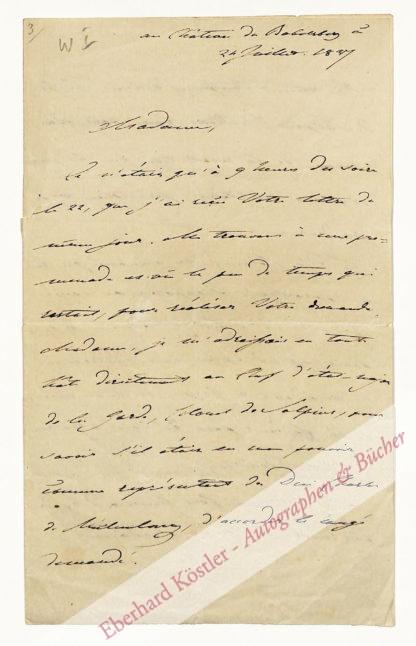 3/
W I
au Château de Babelsberg ce
24 Juillet. 1887
Madame,
Ce n'était qu'à 9 heures du soir
le 22, que j'ai reçu Votre lettre du
même jour. Me trouvant à une pro=
menade et vu le peu de temps qui
restait, pour réaliser Votre demande,
Madame, je m'adressais en tout
hâte directement au Chef d'état-major
de la Garde, Colonel de, pour
savoir s'il était en mon pouvoir
comme représentant du
de, d'accorder le congé
demandé.
Eberhard Köstler - Autographen & Bücher